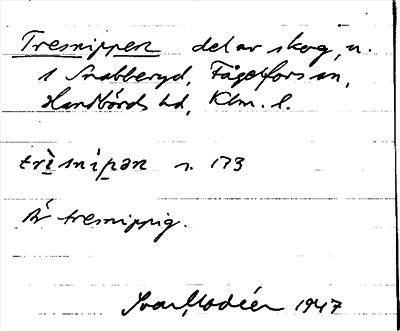 Tresnippen del av skog, u.
i Snabberyd, Fågelfors sn,
Handbörds hd, Klm. l.
trìsnìpən s. 173
Är tresnippig.
Ivar Modéer 1947